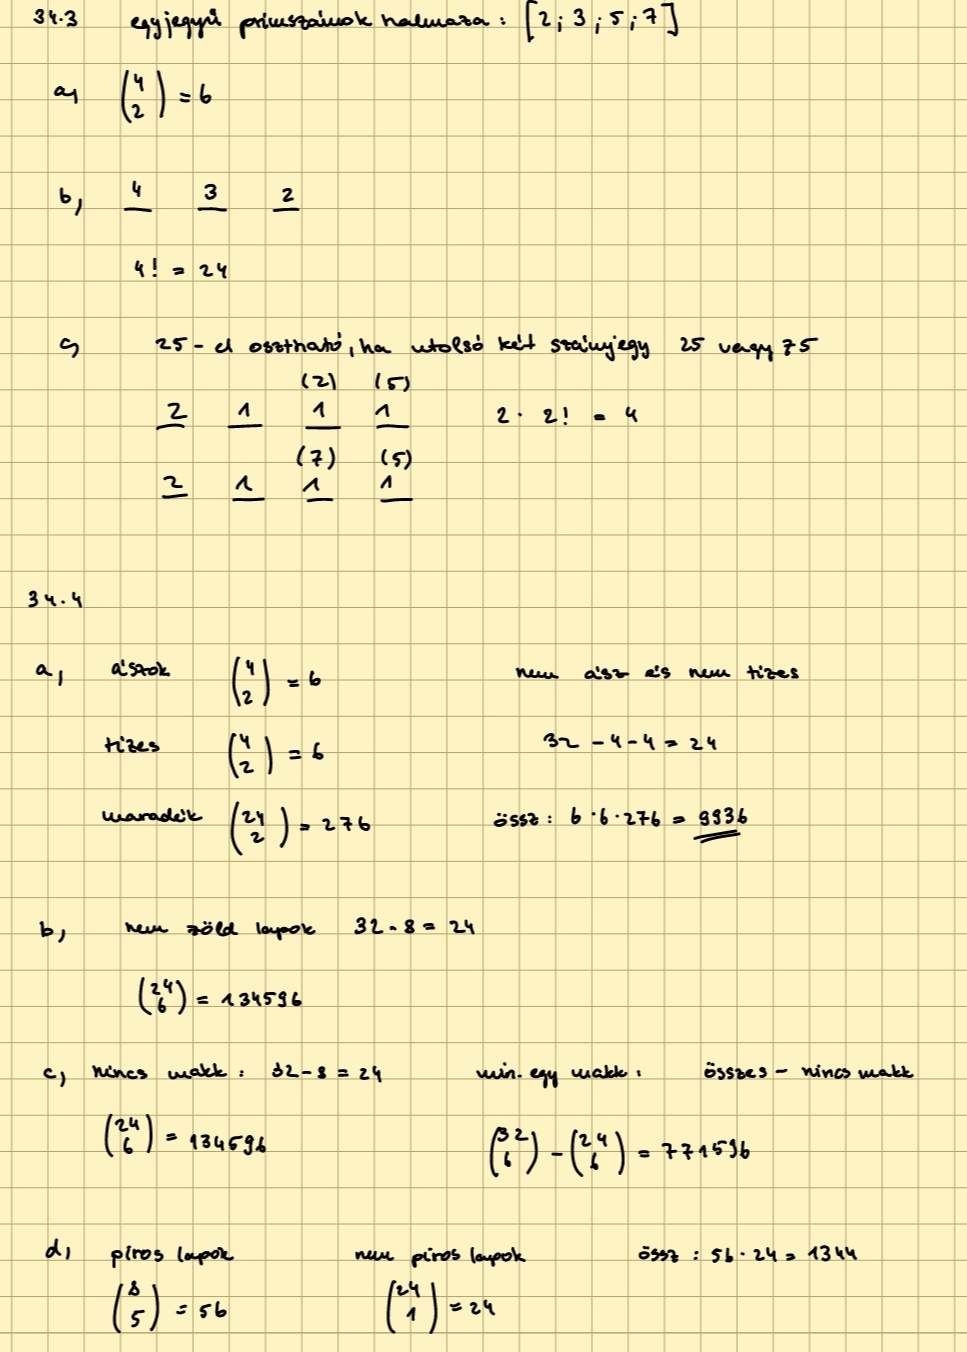 34.3 egyjegyű prímszámok halmaza : [2 ; 3 ; 5 ; 7]
a, (4 2) = 6
b, 4 3 2
4! = 24
c, 25 - el osztható, ha utolsó két számjegy 25 vagy 75
(2) (5)
2 1 1 1 2 · 2! = 4
(7) (5)
2 1 1 1
34.4
a, ászok (4 2) = 6 nem ász és nem tízes
tízes (4 2) = 6 32 - 4 - 4 = 24
maradék (24 2) = 276 össz : 6 · 6 · 276 = 9936
b, nem zöld lapok 32 - 8 = 24
(24 6) = 134596
c, nincs makk : 32 - 8 = 24 min. egy makk : összes - nincs makk
(24 6) = 134596 (32 6) - (24 6) = 771596
d, piros lapok nem piros lapok össz : 56 · 24 = 1344
(8 5) = 56 (24 1) = 24